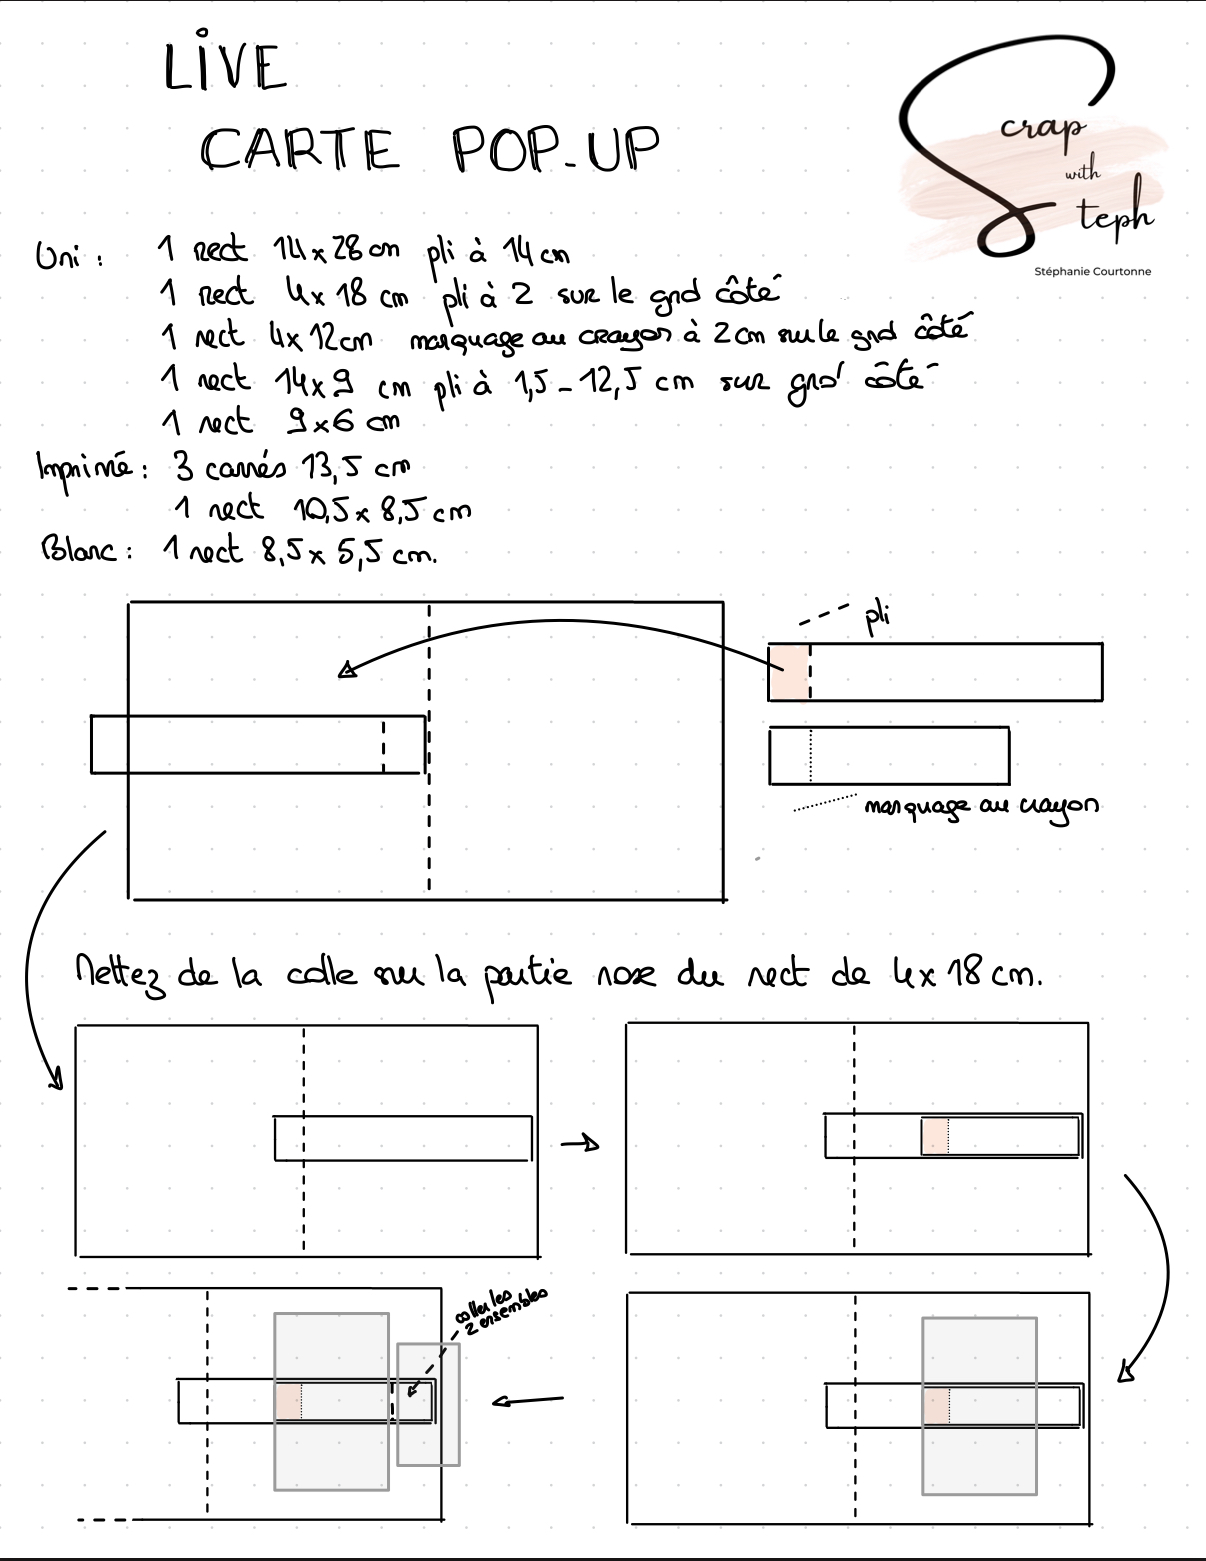 LIVE
CARTE POP-UP
Scrap
with
Steph
Stéphanie Courtonne
Uni : 1 rect 14x28 cm pli à 14 cm
1 rect 4x 18 cm pli à 2 sur le grd côté
1 rect 4x 12cm marquage au crayon à 2cm sur le grd côté
1 rect 14x9 cm pli à 1,5 - 12,5 cm sur grd côté
1 rect 9x6 cm
Imprimé : 3 carrés 13,5 cm
1 rect 10,5 x 8,5 cm
Blanc : 1 rect 8,5 x 5,5 cm.
pli
marquage au crayon
Mettez de la colle sur la partie rose du rect de 4x 18 cm.
coller les
2 ensembles